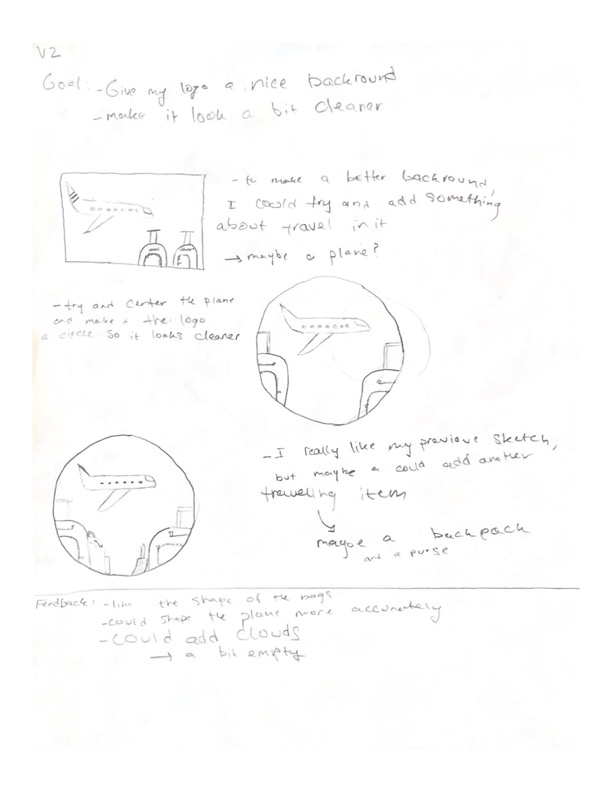 V2
Goal: - Give my logo a nice backround
- make it look a bit cleaner
- to make a better backround,
I could try and add something
about travel in it
→ maybe a plane?
- try and center the plane
and make - the logo
a circle so it looks cleaner
- I really like my previous sketch,
but maybe a could add another
traveling item
maybe a backpack
and a purse
Feedback: - like the shape of the bags
- could shape the plane more accurately
- could add clouds
→ a bit empty